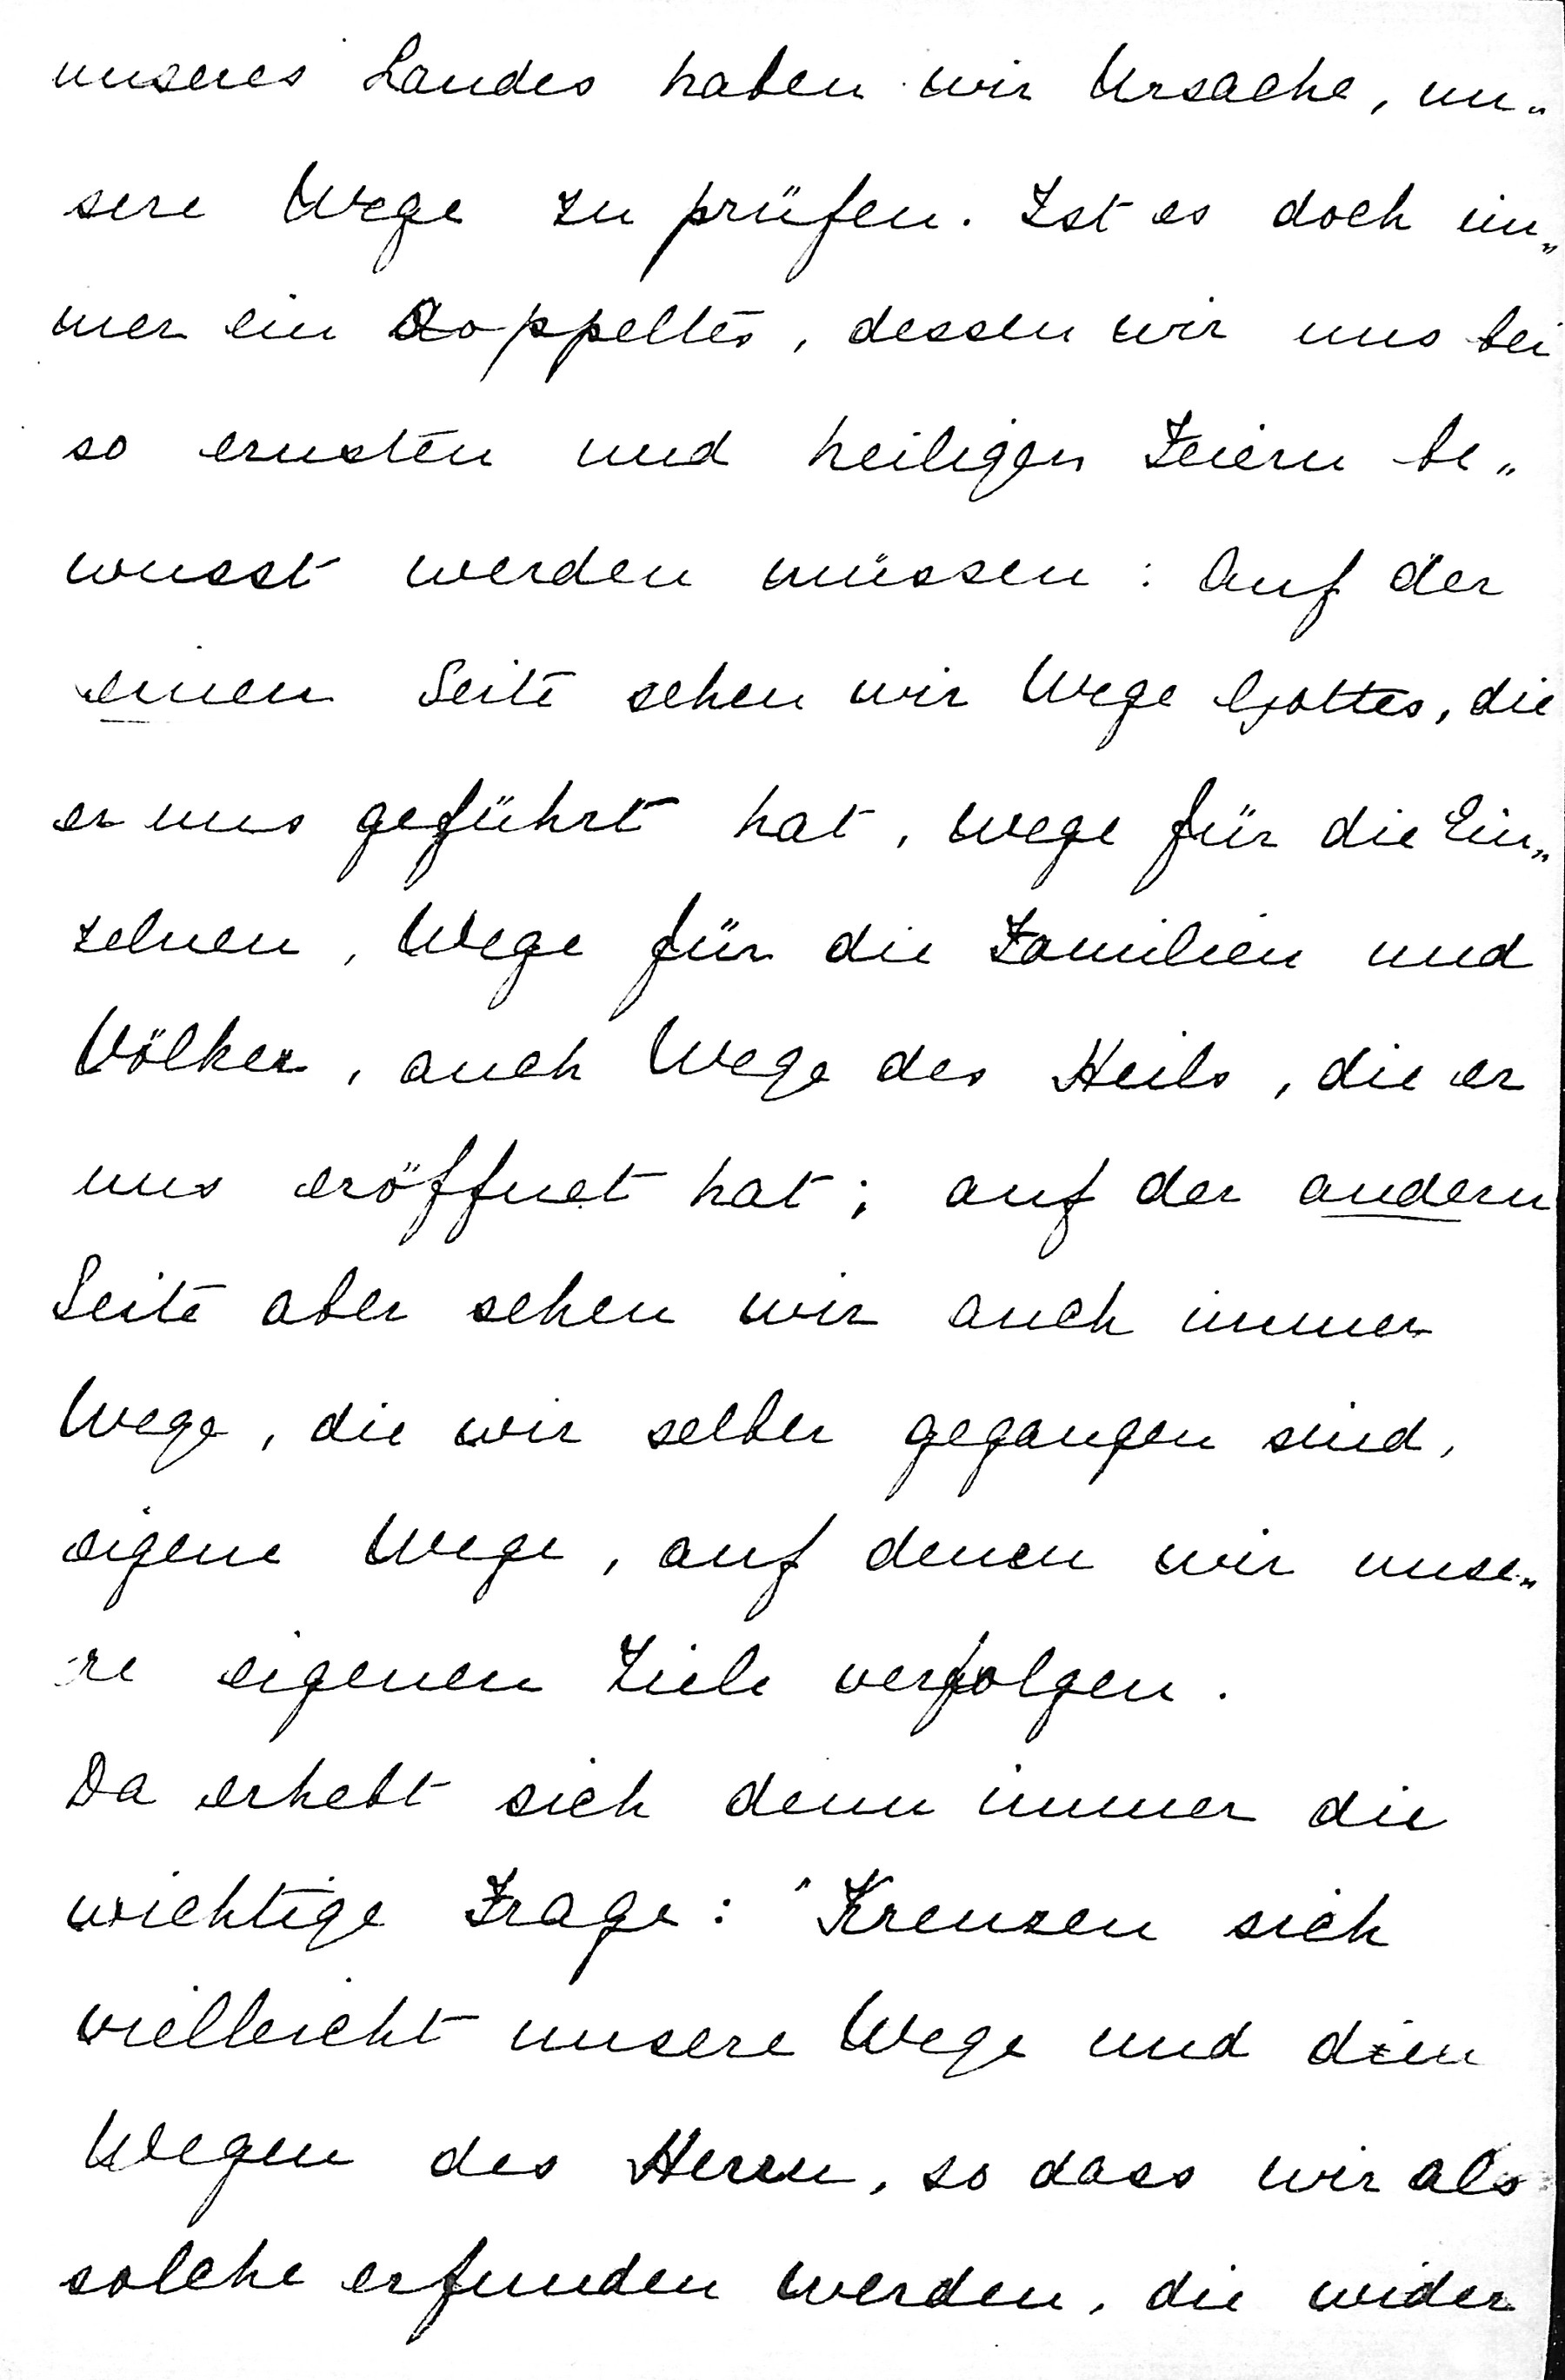 unseres Landes haben wir Ursache, un„
sere Wege zu prüfen. Ist es doch im„
mer ein Doppeltes, dessen wir uns bei
so ernsten und heiligen Feiern be„
wusst werden müssen: Auf der
einen Seite sehen wir Wege Gottes, die
er uns geführt hat, Wege für die Ein„
zelnen, Wege für die Familien und
Völker, auch Wege des Heils, die er
uns eröffnet hat; auf der andern
Seite aber sehen wir auch immer
Wege, die wir selber gegangen sind,
eigene Wege, auf denen wir unse„
re eigenen Ziele verfolgen.
Da erhebt sich denn immer die
wichtige Frage: Kreuzen sich
vielleicht unsere Wege und die
Wegen des Herrn, so dass wir als
solche erfunden werden, die wider